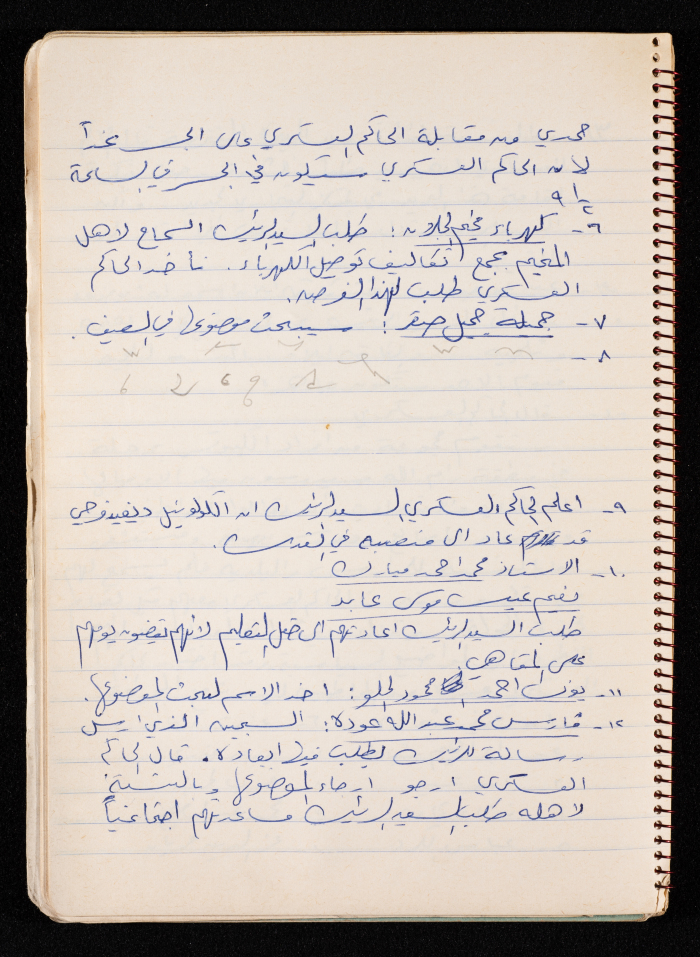 حمدي من مقابلة الحاكم العسكري على الجسر غداً
لان الحاكم العسكري سيكون في الجسر في الساعة
٩
٦- كهرباء مخيم الجلزون : طلب السيد الرئيس السماح لاهل
المخيم بجمع تكاليف توصيل الكهرباء. فأخذ الحاكم
العسكري طلب بهذا الغرض.
٧- جميلة جميل صقر : سيبحث موضوعها في الصيف.
٨-
٩- اعلم الحاكم العسكري السيد الرئيس ان الكولونيل ديفيد فرحي
قد عاد الى منصبه في القدس.
١٠- الاستاذ محمد احمد مبارك
نعيم عيسى موسى عابد
طلب السيد الرئيس اعادتهم الى حقل التعليم لانهم يقضون يومهم
على المقاهي.
١١- يوسف احمد محمود الحلو : اخذ الاسم لبحث الموضوع.
١٢- فارس محمد عبد الله عودة : السجين الذي ارسل
رسالة للرئيس يطلب فيها ابعاده. قال الحاكم
العسكري ارجو ارجاء الموضوع وبالنسبة
لاهله طلب السيد الرئيس مساعدتهم اجتماعياً